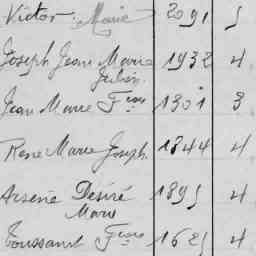 Victor Marie 2091 5
Joseph Jean Marie 1932 4
Julien
Jean Marie Fcois 1301 3
René Marie Joseph 1844 4
Arsène Désiré 1895 4
Marie
Toussaint Fcois 1625 4